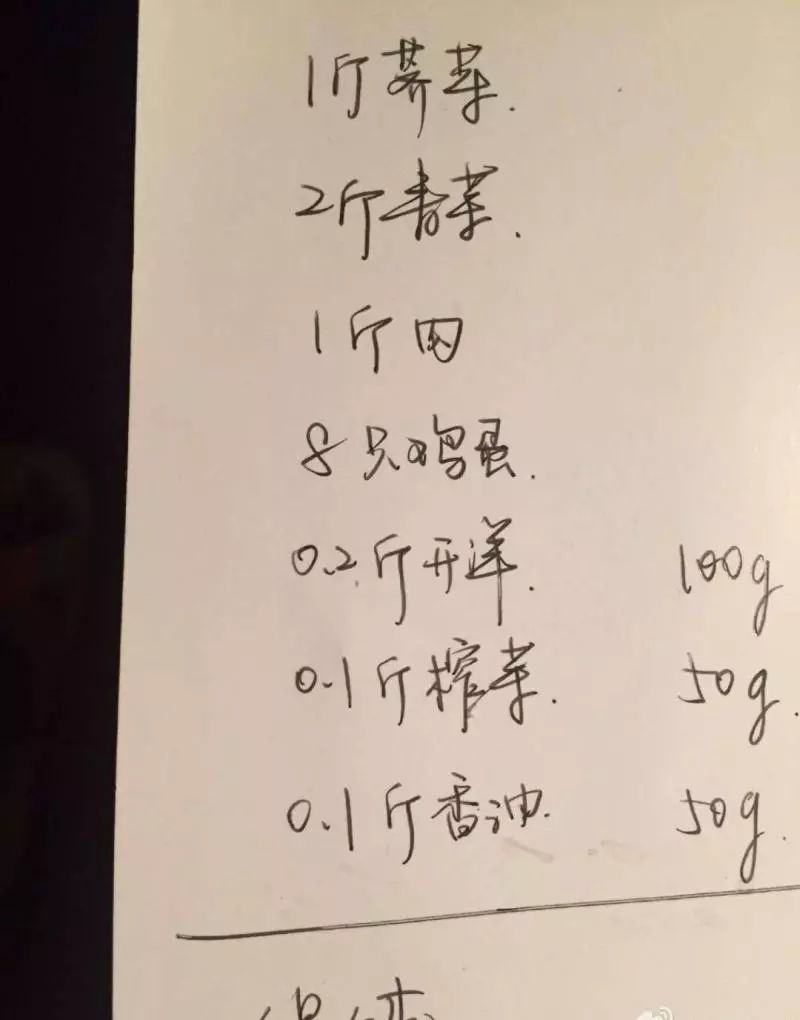 1斤荠菜.
2斤青菜.
1斤肉
8只鸡蛋.
0.2斤开洋. 100g
0.1斤榨菜. 50g.
0.1斤香油. 50g.